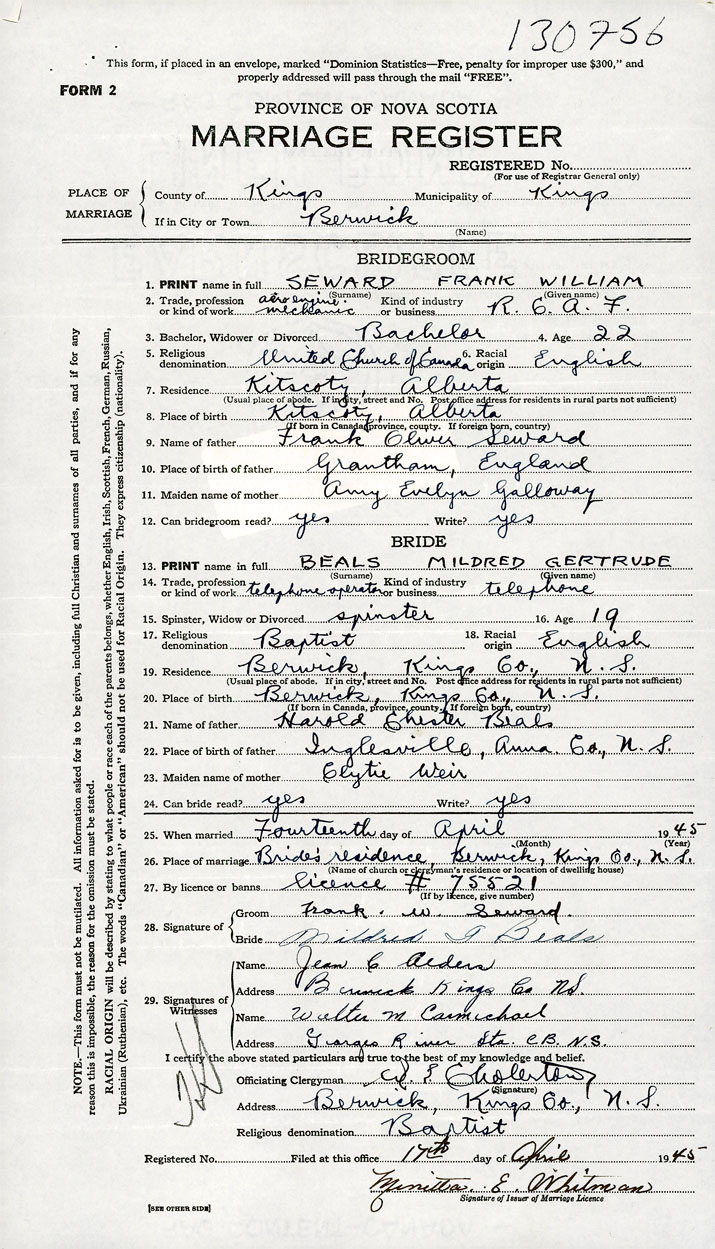 130756
This form, if placed in an envelope, marked "Dominion Statistics—Free, penalty for improper use $300," and
properly addressed will pass through the mail "FREE".
FORM 2
PROVINCE OF NOVA SCOTIA
MARRIAGE REGISTER
REGISTERED No.
(For use of Registrar General only)
PLACE OF MARRIAGE
County of Kings Municipality of Kings
If in City or Town Berwick
(Name)
BRIDEGROOM
1. PRINT name in full SEWARD FRANK WILLIAM
(Surname) (Given name)
2. Trade, profession or kind of work aero engine mechanic Kind of industry or business R. C. A. F.
3. Bachelor, Widower or Divorced Bachelor 4. Age 22
5. Religious denomination United Church of Canada 6. Racial origin English
7. Residence Kitscoty, Alberta
(Usual place of abode. If in city, street and No. Post office address for residents in rural parts not sufficient)
8. Place of birth Kitscoty, Alberta
(If born in Canada, province, county. If foreign born, country)
9. Name of father Frank Oliver Seward
10. Place of birth of father Grantham, England
11. Maiden name of mother Amy Evelyn Galloway
12. Can bridegroom read? yes Write? yes
BRIDE
13. PRINT name in full BEALS MILDRED GERTRUDE
(Surname) (Given name)
14. Trade, profession or kind of work telephone operator Kind of industry or business telephone
15. Spinster, Widow or Divorced spinster 16. Age 19
17. Religious denomination Baptist 18. Racial origin English
19. Residence Berwick, Kings Co., N. S.
(Usual place of abode. If in city, street and No. Post office address for residents in rural parts not sufficient)
20. Place of birth Berwick, Kings Co., N. S.
(If born in Canada, province, county. If foreign born, country)
21. Name of father Harold Chester Beals
22. Place of birth of father Inglesville, Anna. Co., N. S.
23. Maiden name of mother Clytie Weir
24. Can bride read? yes Write? yes
25. When married Fourteenth day of April 1945
(Month) (Year)
26. Place of marriage Bride's residence, Berwick, Kings Co., N. S.
(Name of church or clergyman's residence or location of dwelling house)
27. By licence or banns licence # 75521
(If by licence, give number)
28. Signature of
Groom Frank. W. Seward.
Bride Mildred G Beals
29. Signatures of Witnesses
Name Jean C Alders
Address Berwick Kings Co NS.
Name Walter M Carmichael
Address Georges River Sta. C.B. N.S.
I certify the above stated particulars are true to the best of my knowledge and belief.
Officiating Clergyman Cholerton
(Signature)
Address Berwick, Kings Co., N. S.
Religious denomination Baptist
Registered No. Filed at this office 17th day of April 1945
Minetta. E. Whitman
Signature of Issuer of Marriage Licence
[SEE OTHER SIDE]
NOTE.—This form must not be mutilated. All information asked for is to be given, including full Christian and surnames of all parties, and if for any
reason this is impossible, the reason for the omission must be stated.
RACIAL ORIGIN will be described by stating to what people or race each of the parents belongs, whether English, Irish, Scottish, French, German, Russian,
Ukrainian (Ruthenian), etc. The words "Canadian" or "American" should not be used for Racial Origin. They express citizenship (nationality).